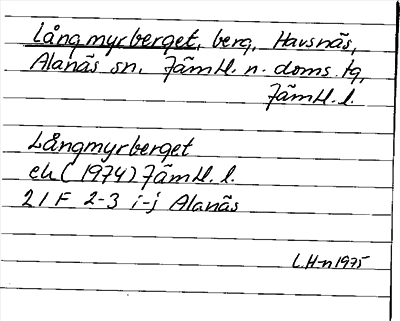 Långmyrberget, berg, Havsnäs,
Alanäs sn. Jämtl. n. doms. tg,
Jämtl. l.
Långmyrberget
ek (1974) Jämtl. l.
21 F 2-3 i-j Alanäs
L.H-n 1975